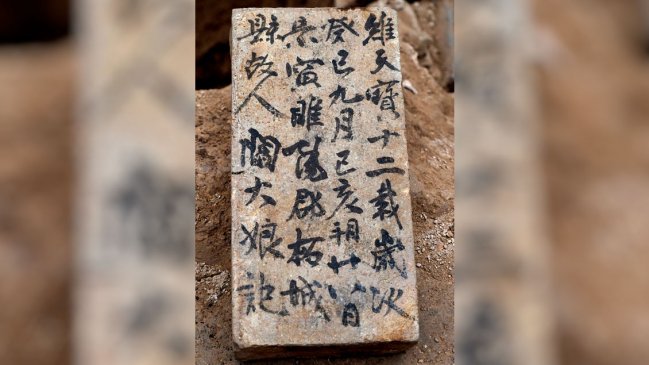 維天寶十二載歲次
癸巳九月己亥朔廿八日
景寅睢陽郡柘城
縣故人闞大娘記